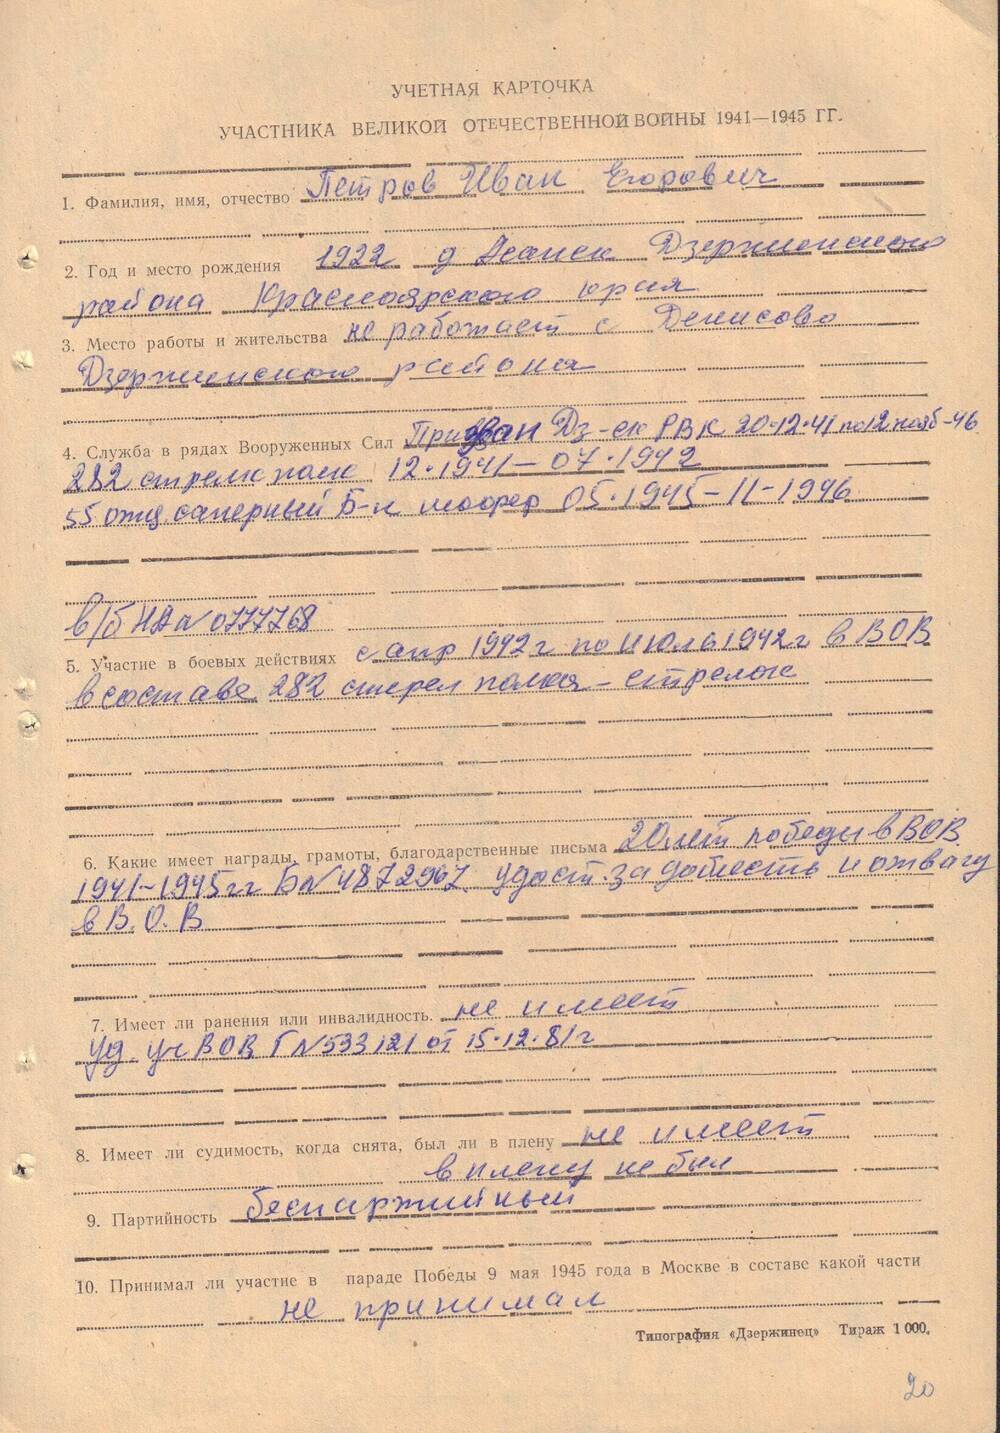 УЧЕТНАЯ КАРТОЧКА
УЧАСТНИКА ВЕЛИКОЙ ОТЕЧЕСТВЕННОЙ ВОЙНЫ 1941—1945 ГГ.
1. Фамилия, имя, отчество Петров Иван Егорович
2. Год и место рождения 1922 д Канск Дзержинского
района Красноярского края
3. Место работы и жительства не работает с Денисово
Дзержинского района
4. Служба в рядах Вооруженных Сил Призван Дз-ск РВК 20·12·41 по 12 нояб-46
282 стрелк полк 12·1941—07·1942
55 отд. саперный Б-н шофер 05·1945-11-1946
в/б НД № 0777768
5. Участие в боевых действиях с апр 1942 г по июль 1942 г в ВОВ
в составе 282 стрел полка - стрелок
6. Какие имеет награды, грамоты, благодарственные письма 20 лет победы в ВОВ
1941-1945 гг Б№ 4872967. удост. за доблесть и отвагу
в В. О. В
7. Имеет ли ранения или инвалидность. не имеет
Уд. уч ВОВ Г №533121 от 15·12·81 г
8. Имеет ли судимость, когда снята, был ли в плену не имеет
в плену не был
9. Партийность беспартийный
10. Принимал ли участие в параде Победы 9 мая 1945 года в Москве в составе какой части
не принимал
Типография «Дзержинец» Тираж 1 000.
20